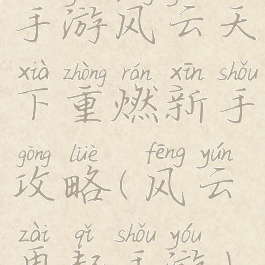 手游风云天
xià zhòng rán xīn shǒu
下重燃新手
gōng lüè fēng yún
攻略(风云
zài qǐ shǒu yóu
再起手游)